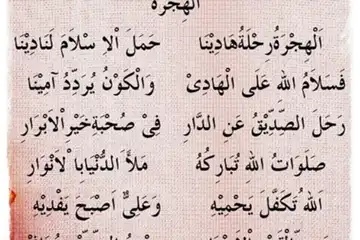 الْهِجْرَة
اَلْهِجْرَةُ رِحْلَةُ هَادِيْنَا حَمَلَ الْاِ سْلَامَ لَنَادِيْنَا
فَسَلَامُ اللهِ عَلَى الْهَادِيْ وَالْكَوْنُ يُرَدِّدُ آمِيْنَا
رَحَلَ الصِّدِّيْقُ عَنِ الدَّارِ فِيْ صُحْبَةِ خَيْرِ الْاَبْرَارِ
صَلَوَاتُ اللهِ تُبَارِكُهُ مَلَأَ الدُّنْيَا بِا لْاَنْوَارِ
اَللهُ تَكَفَّلَ يَحْمِيْهِ وَعَلِيٌّ اَصْبَحَ يَفْدِيْهِ